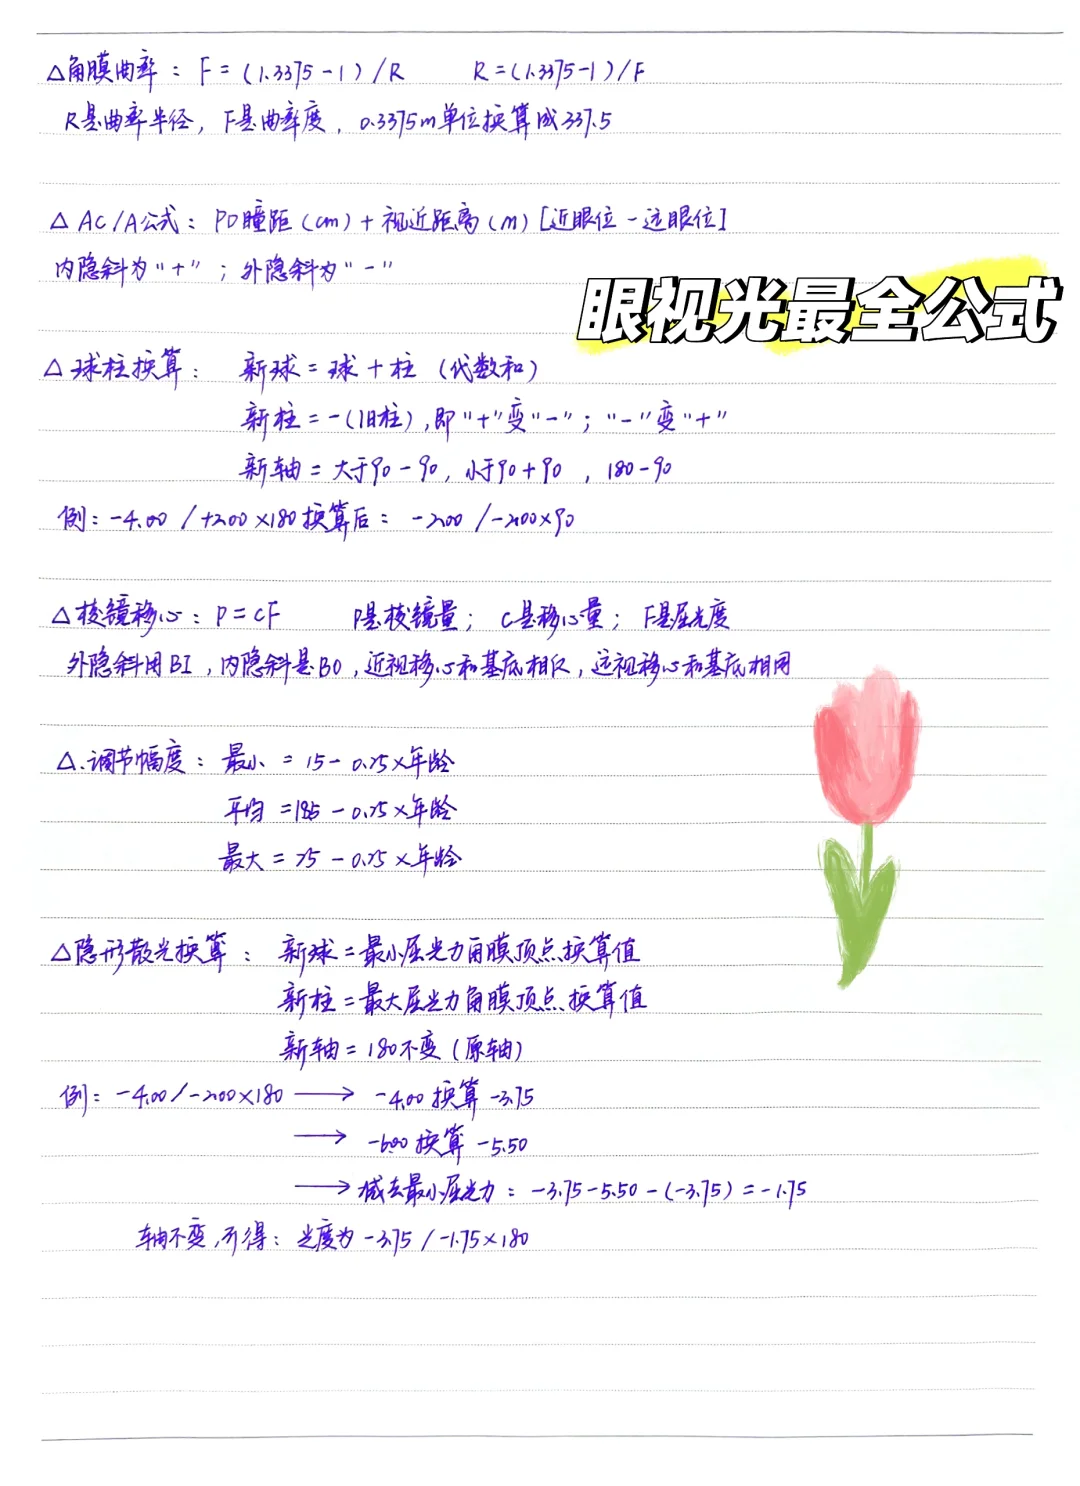 △角膜曲率：F=(1.3375-1)/R R=(1.3375-1)/F
R是曲率半径，F是曲率度，0.3375m单位换算成337.5
△AC/A公式：PD瞳距(cm)+视近距离(m)[近眼位-远眼位]
内隐斜为"+"；外隐斜为"-"
眼视光最全公式
△球柱换算：新球=球+柱（代数和）
新柱=-(旧柱),即"+"变"-"；"-"变"+"
新轴=大于90-90，小于90+90，180-90
例：-4.00/+2.00×180换算后：-2.00/-2.00×90
△棱镜移心：P=CF P是棱镜量；C是移心量；F是屈光度
外隐斜用BI，内隐斜是BO，近视移心和基底相反，远视移心和基底相同
△.调节幅度：最小=15-0.25×年龄
平均=18.5-0.25×年龄
最大=25-0.25×年龄
△隐形散光换算：新球=最小屈光力角膜顶点换算值
新柱=最大屈光力角膜顶点换算值
新轴=180不变（原轴）
例：-4.00/-2.00×180 → -4.00换算-3.75
→ -6.00换算-5.50
→减去最小屈光力：-3.75-5.50-(-3.75)=-1.75
轴不变,所得：光度为-3.75/-1.75×180